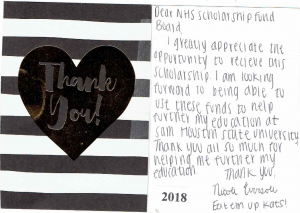 Thank
You!
Dear NHS Scholarship Fund
Board
I greatly appreciate the
opportunity to recieve this
scholarship. I am looking
forward to being able to
use these funds to help
further my education at
Sam Houston State University
Thank you all so much for
helping me further my
education.
Thank you,
Nicole
Eat em up Kats!
2018